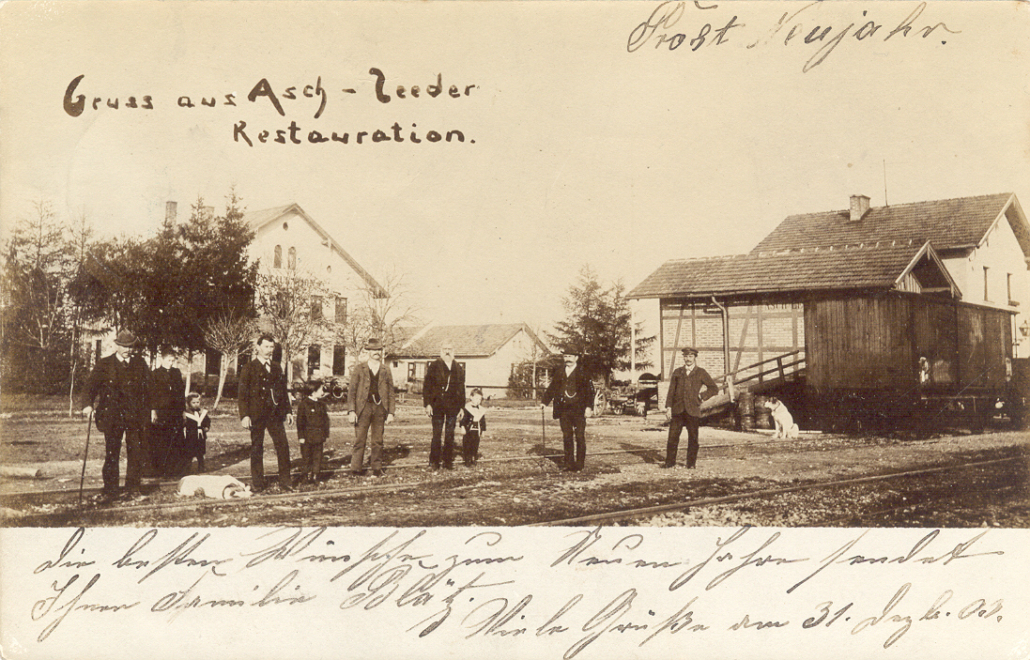 Prost Neujahr.
Gruss aus Asch - Leeder
Restauration.
Die besten Wünsche zum Neuen Jahre sendet
Ihnen Familie Blätz.
Viele Grüße am 31. Dezb. 03.